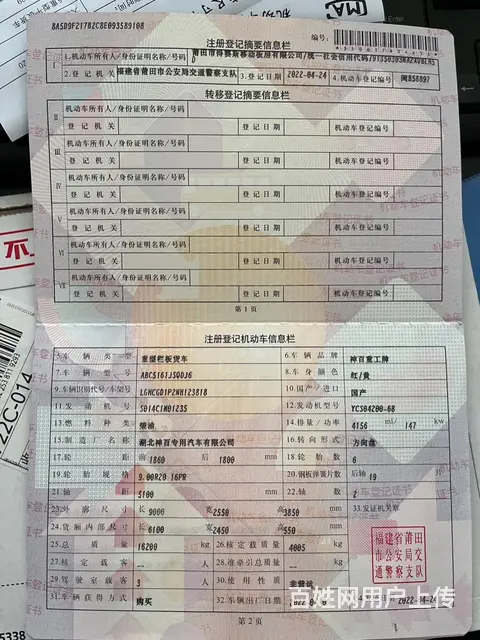 8A5D9F21782C8E093589108
注册登记摘要信息栏
编号:
1.机动车所有人/身份证明名称/号码
2.登记机关 福建省莆田市公安局交通警察支队 3.登记日期 2022-04-24 4.机动车登记编号 闽B58897
转移登记摘要信息栏
II 机动车所有人/身份证明名称/号码
登记机关 登记日期 机动车登记编号
III 机动车所有人/身份证明名称/号码
登记机关 登记日期 机动车登记编号
IV 机动车所有人/身份证明名称/号码
登记机关 登记日期 机动车登记编号
V 机动车所有人/身份证明名称/号码
登记机关 登记日期 机动车登记编号
VI 机动车所有人/身份证明名称/号码
登记机关 登记日期 机动车登记编号
VII 机动车所有人/身份证明名称/号码
登记机关 登记日期 机动车登记编号
第1页
注册登记机动车信息栏
5.车辆类型 重型栏板货车 6.车辆品牌 神百重工牌
7.车辆型号 ABC5161JSQDJ6 8.车身颜色 红/黄
9.车辆识别代号/车架号 LGHCGD1P2NH123818 10.国产/进口 国产
11.发动机号 S014C1N01235 12.发动机型号 YCS04200-68
13.燃料种类 柴油 14.排量/功率 4156 ml/ 147 kw
15.制造厂名称 湖北神百专用汽车有限公司 16.转向形式 方向盘
17.轮距 前 1860 后 1800 mm 18.轮胎数 6
19.轮胎规格 9.00R20 16PR 20.钢板弹簧片数 后轴 19
21.轴距 5100 mm 22.轴数 2
23.外廓尺寸 长 9000 宽 2550 高 3850 mm 33.发证机关章
24.货厢内部尺寸 长 6100 宽 2450 高 550 mm
25.总质量 16200 kg 26.核定载质量 4005 kg
27.核定载客 -- 人 28.准牵引总质量 -- kg
29.驾驶室载客 3 人 30.使用性质 非营运
31.车辆获得方式 购买 32.车辆出厂日期
2022-04-24
福建省莆田
市公安局交
通警察支队
第2页
百姓网用户上传
22C-014
5338